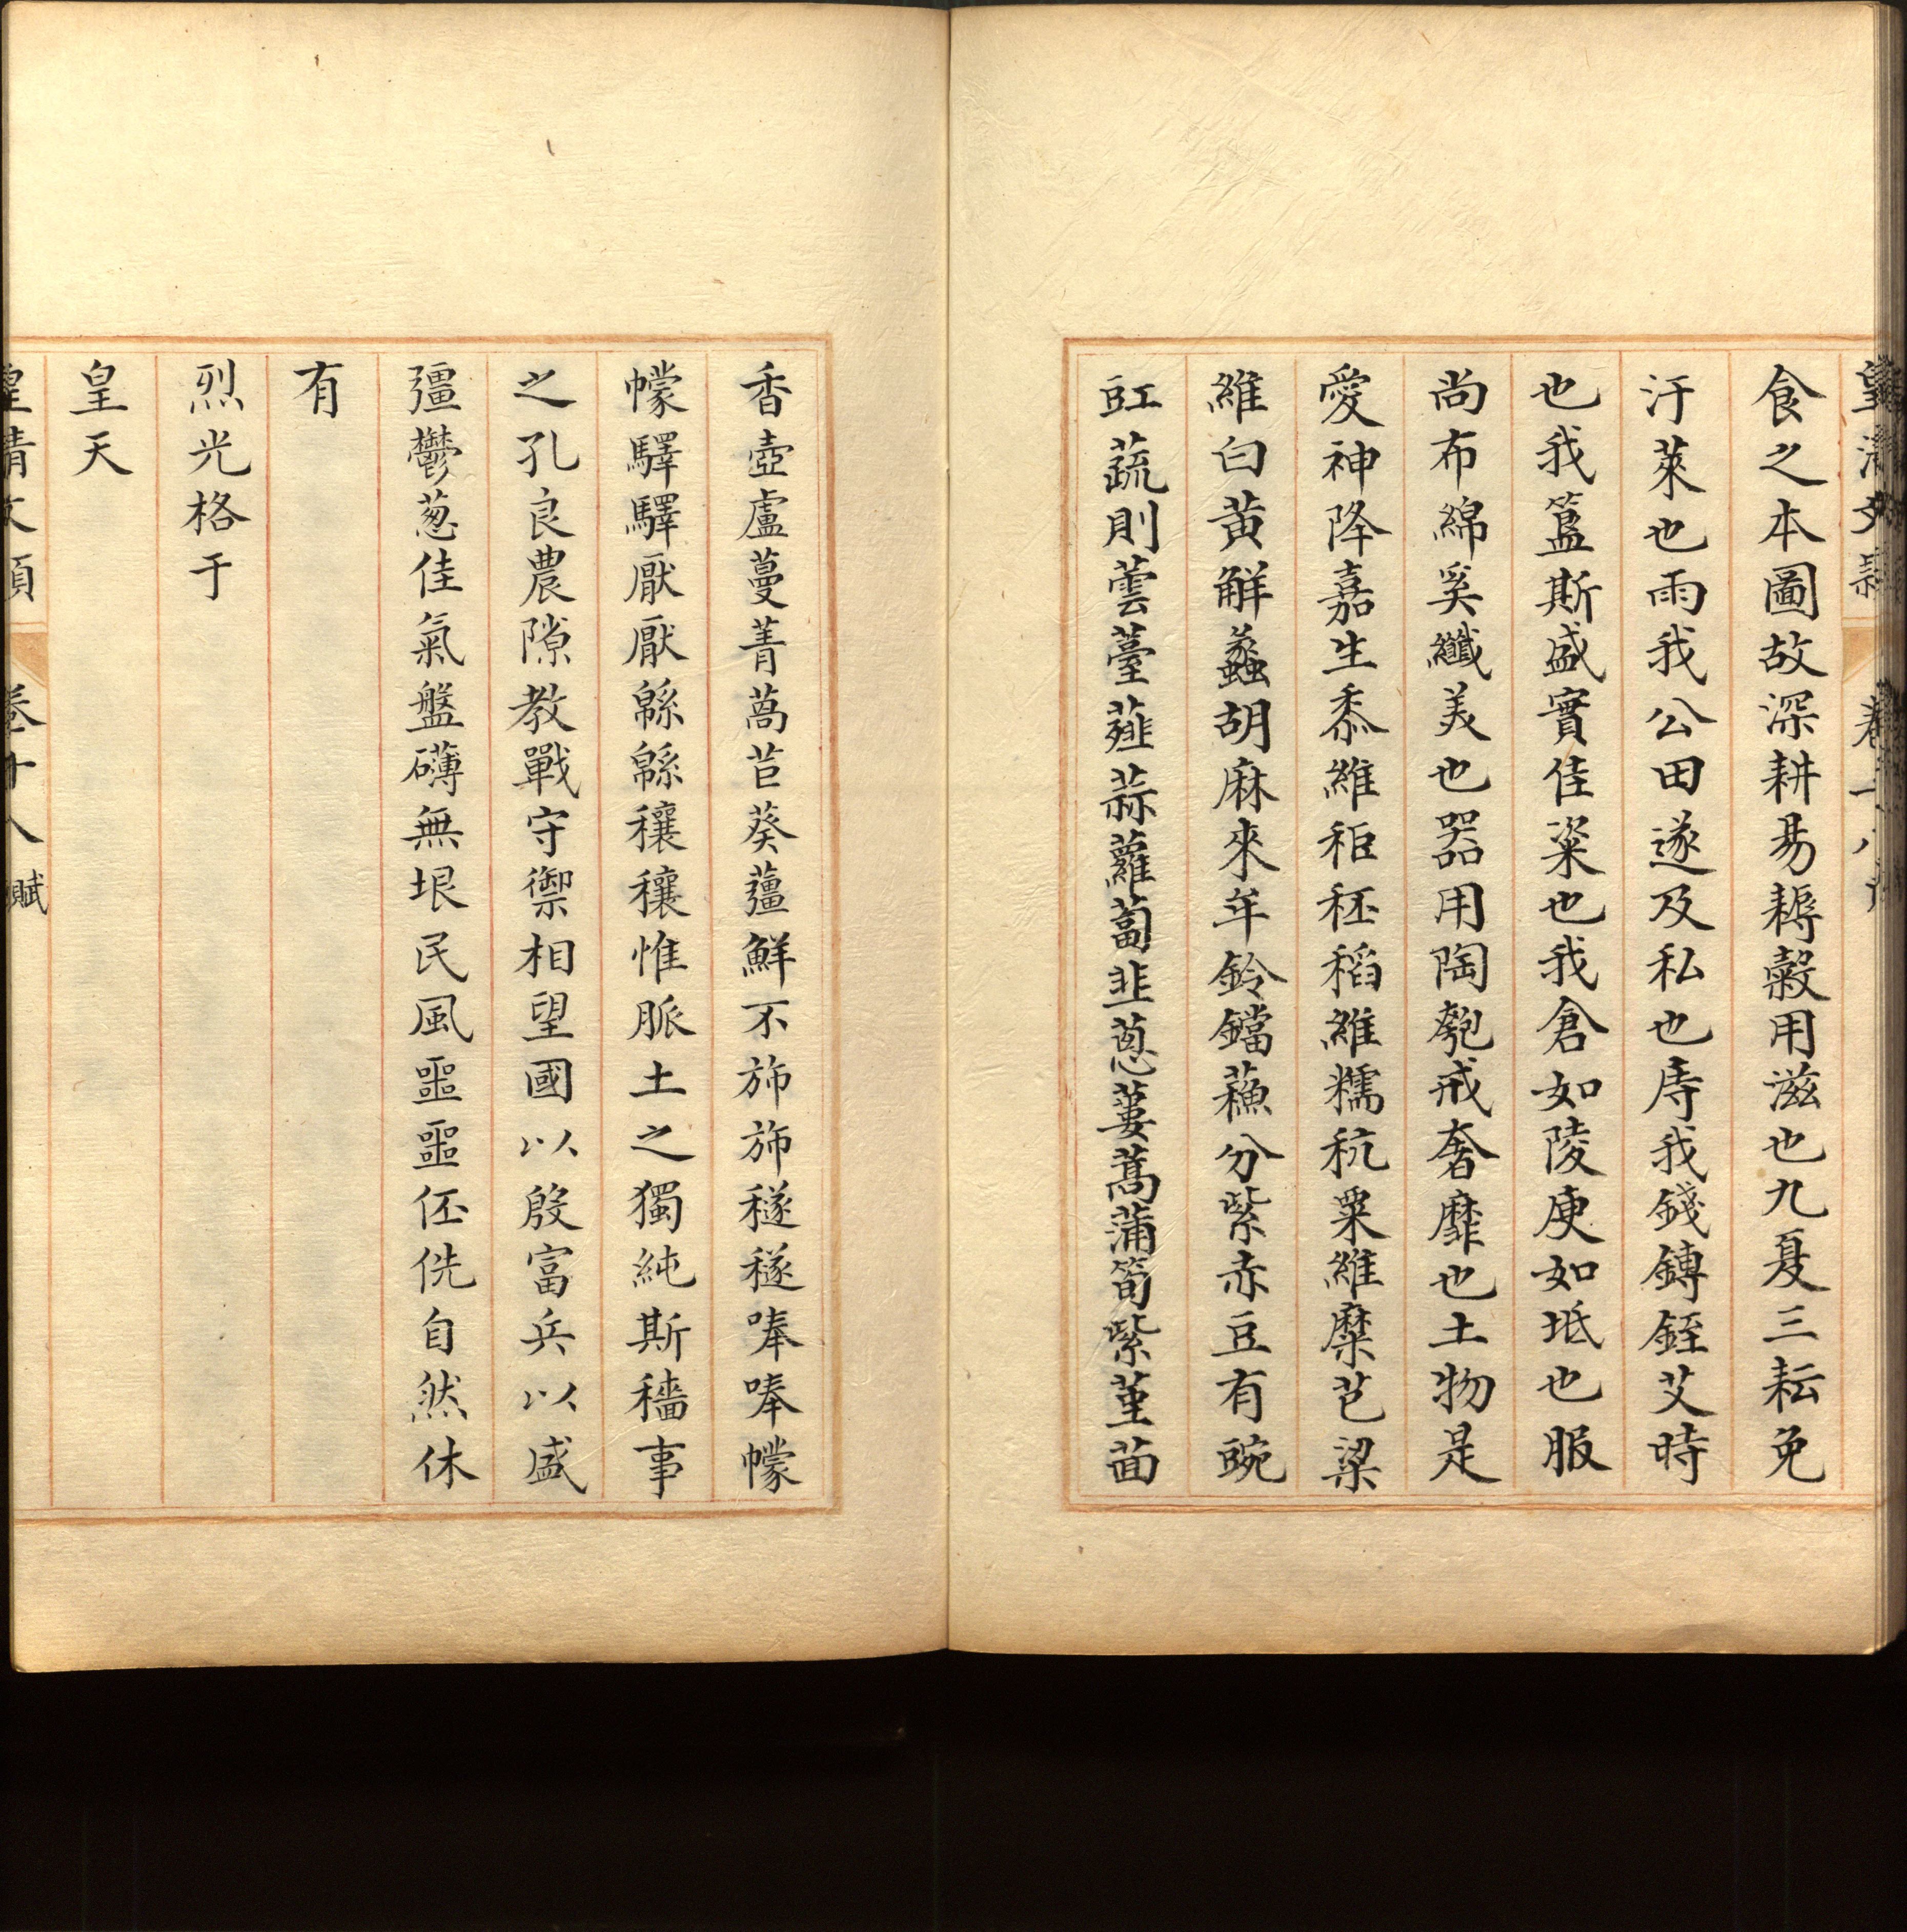 皇清文穎 卷十八 賦
食之本圖故深耕易耨穀用滋也九夏三耘免
汙萊也雨我公田遂及私也庤我錢鎛銍艾時
也我簋斯盛實佳粢也我倉如陵庾如坻也服
尚布綿奚纖美也器用陶匏戒奢靡也土物是
愛神降嘉生黍維秬秠稻維糯秔粟維穈芑粱
維白黃觧蠡胡麻來牟鈴鐺蘓分紫赤豆有豌
豇蔬則蕓薹薤蒜蘿蔔韭蔥蔞蒿蒲筍紫堇茴
香壺盧蔓菁萵苣葵薑鮮不斾斾穟穟唪唪幪
幪驛驛厭厭緜緜穰穰惟脈土之獨純斯穡事
之孔良農隙教戰守禦相望國以殷富兵以盛
彊鬱葱佳氣盤礴無垠民風噩噩伾侁自然休
有
烈光格于
皇天
皇清文穎 卷十八 賦